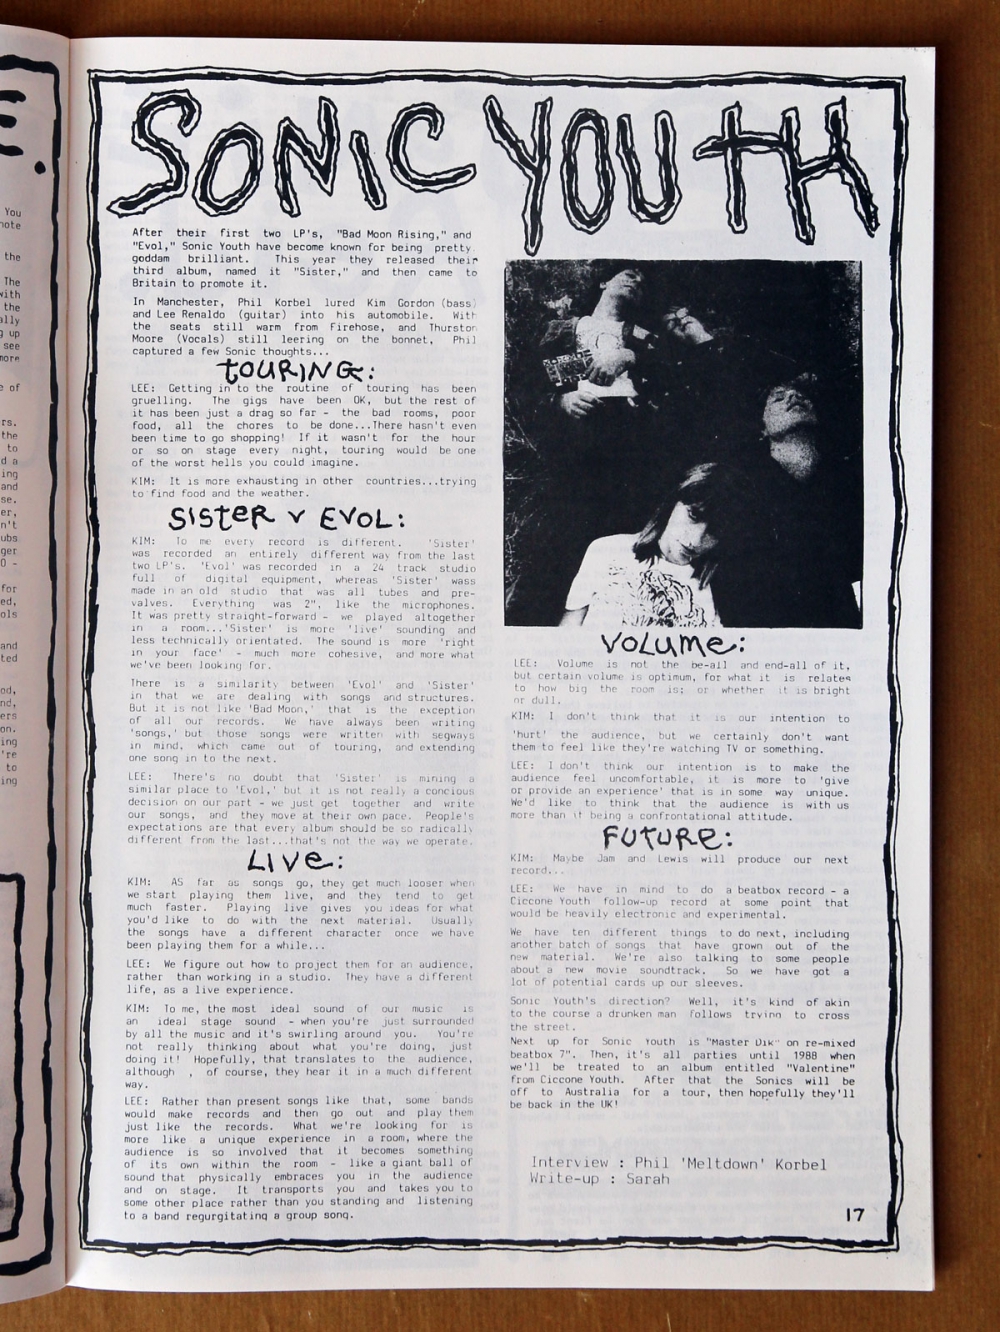 SONIC YOUTH
After their first two LP's, "Bad Moon Rising," and
"Evol," Sonic Youth have become known for being pretty
goddam brilliant. This year they released their
third album, named it "Sister," and then came to
Britain to promote it.
In Manchester, Phil Korbel lured Kim Gordon (bass)
and Lee Renaldo (guitar) into his automobile. With
the seats still warm from Firehose, and Thurston
Moore (Vocals) still leering on the bonnet, Phil
captured a few Sonic thoughts...
TOURING:
LEE: Getting in to the routine of touring has been
gruelling. The gigs have been OK, but the rest of
it has been just a drag so far - the bad rooms, poor
food, all the chores to be done...There hasn't even
been time to go shopping! If it wasn't for the hour
or so on stage every night, touring would be one
of the worst hells you could imagine.
KIM: It is more exhausting in other countries...trying
to find food and the weather.
SISTER v EVOL:
KIM: To me every record is different. 'Sister'
was recorded an entirely different way from the last
two LP's. 'Evol' was recorded in a 24 track studio
full of digital equipment, whereas 'Sister' wass
made in an old studio that was all tubes and pre-
valves. Everything was 2", like the microphones.
It was pretty straight-forward - we played altogether
in a room...'Sister' is more 'live' sounding and
less technically orientated. The sound is more 'right
in your face' - much more cohesive, and more what
we've been looking for.
There is a similarity between 'Evol' and 'Sister'
in that we are dealing with songs and structures.
But it is not like 'Bad Moon,' that is the exception
of all our records. We have always been writing
'songs,' but those songs were written with segways
in mind, which came out of touring, and extending
one song in to the next.
LEE: There's no doubt that 'Sister' is mining a
similar place to 'Evol,' but it is not really a concious
decision on our part - we just get together and write
our songs, and they move at their own pace. People's
expectations are that every album should be so radically
different from the last...that's not the way we operate.
LIVE:
KIM: AS far as songs go, they get much looser when
we start playing them live, and they tend to get
much faster. Playing live gives you ideas for what
you'd like to do with the next material. Usually
the songs have a different character once we have
been playing them for a while...
LEE: We figure out how to project them for an audience,
rather than working in a studio. They have a different
life, as a live experience.
KIM: To me, the most ideal sound of our music is
an ideal stage sound - when you're just surrounded
by all the music and it's swirling around you. You're
not really thinking about what you're doing, just
doing it! Hopefully, that translates to the audience,
although , of course, they hear it in a much different
way.
LEE: Rather than present songs like that, some bands
would make records and then go out and play them
just like the records. What we're looking for is
more like a unique experience in a room, where the
audience is so involved that it becomes something
of its own within the room - like a giant ball of
sound that physically embraces you in the audience
and on stage. It transports you and takes you to
some other place rather than you standing and listening
to a band regurgitating a group song.
VOLUME:
LEE: Volume is not the be-all and end-all of it,
but certain volume is optimum, for what it is relates
to how big the room is; or whether it is bright
or dull.
KIM: I don't think that it is our intention to
'hurt' the audience, but we certainly don't want
them to feel like they're watching TV or something.
LEE: I don't think our intention is to make the
audience feel uncomfortable, it is more to 'give
or provide an experience' that is in some way unique.
We'd like to think that the audience is with us
more than it being a confrontational attitude.
FUTURE:
KIM: Maybe Jam and Lewis will produce our next
record...
LEE: We have in mind to do a beatbox record - a
Ciccone Youth follow-up record at some point that
would be heavily electronic and experimental.
We have ten different things to do next, including
another batch of songs that have grown out of the
new material. We're also talking to some people
about a new movie soundtrack. So we have got a
lot of potential cards up our sleeves.
Sonic Youth's direction? Well, it's kind of akin
to the course a drunken man follows trying to cross
the street.
Next up for Sonic Youth is "Master Dik" on re-mixed
beatbox 7". Then, it's all parties until 1988 when
we'll be treated to an album entitled "Valentine"
from Ciccone Youth. After that the Sonics will be
off to Australia for a tour, then hopefully they'll
be back in the UK!
Interview : Phil 'Meltdown' Korbel
Write-up : Sarah
17